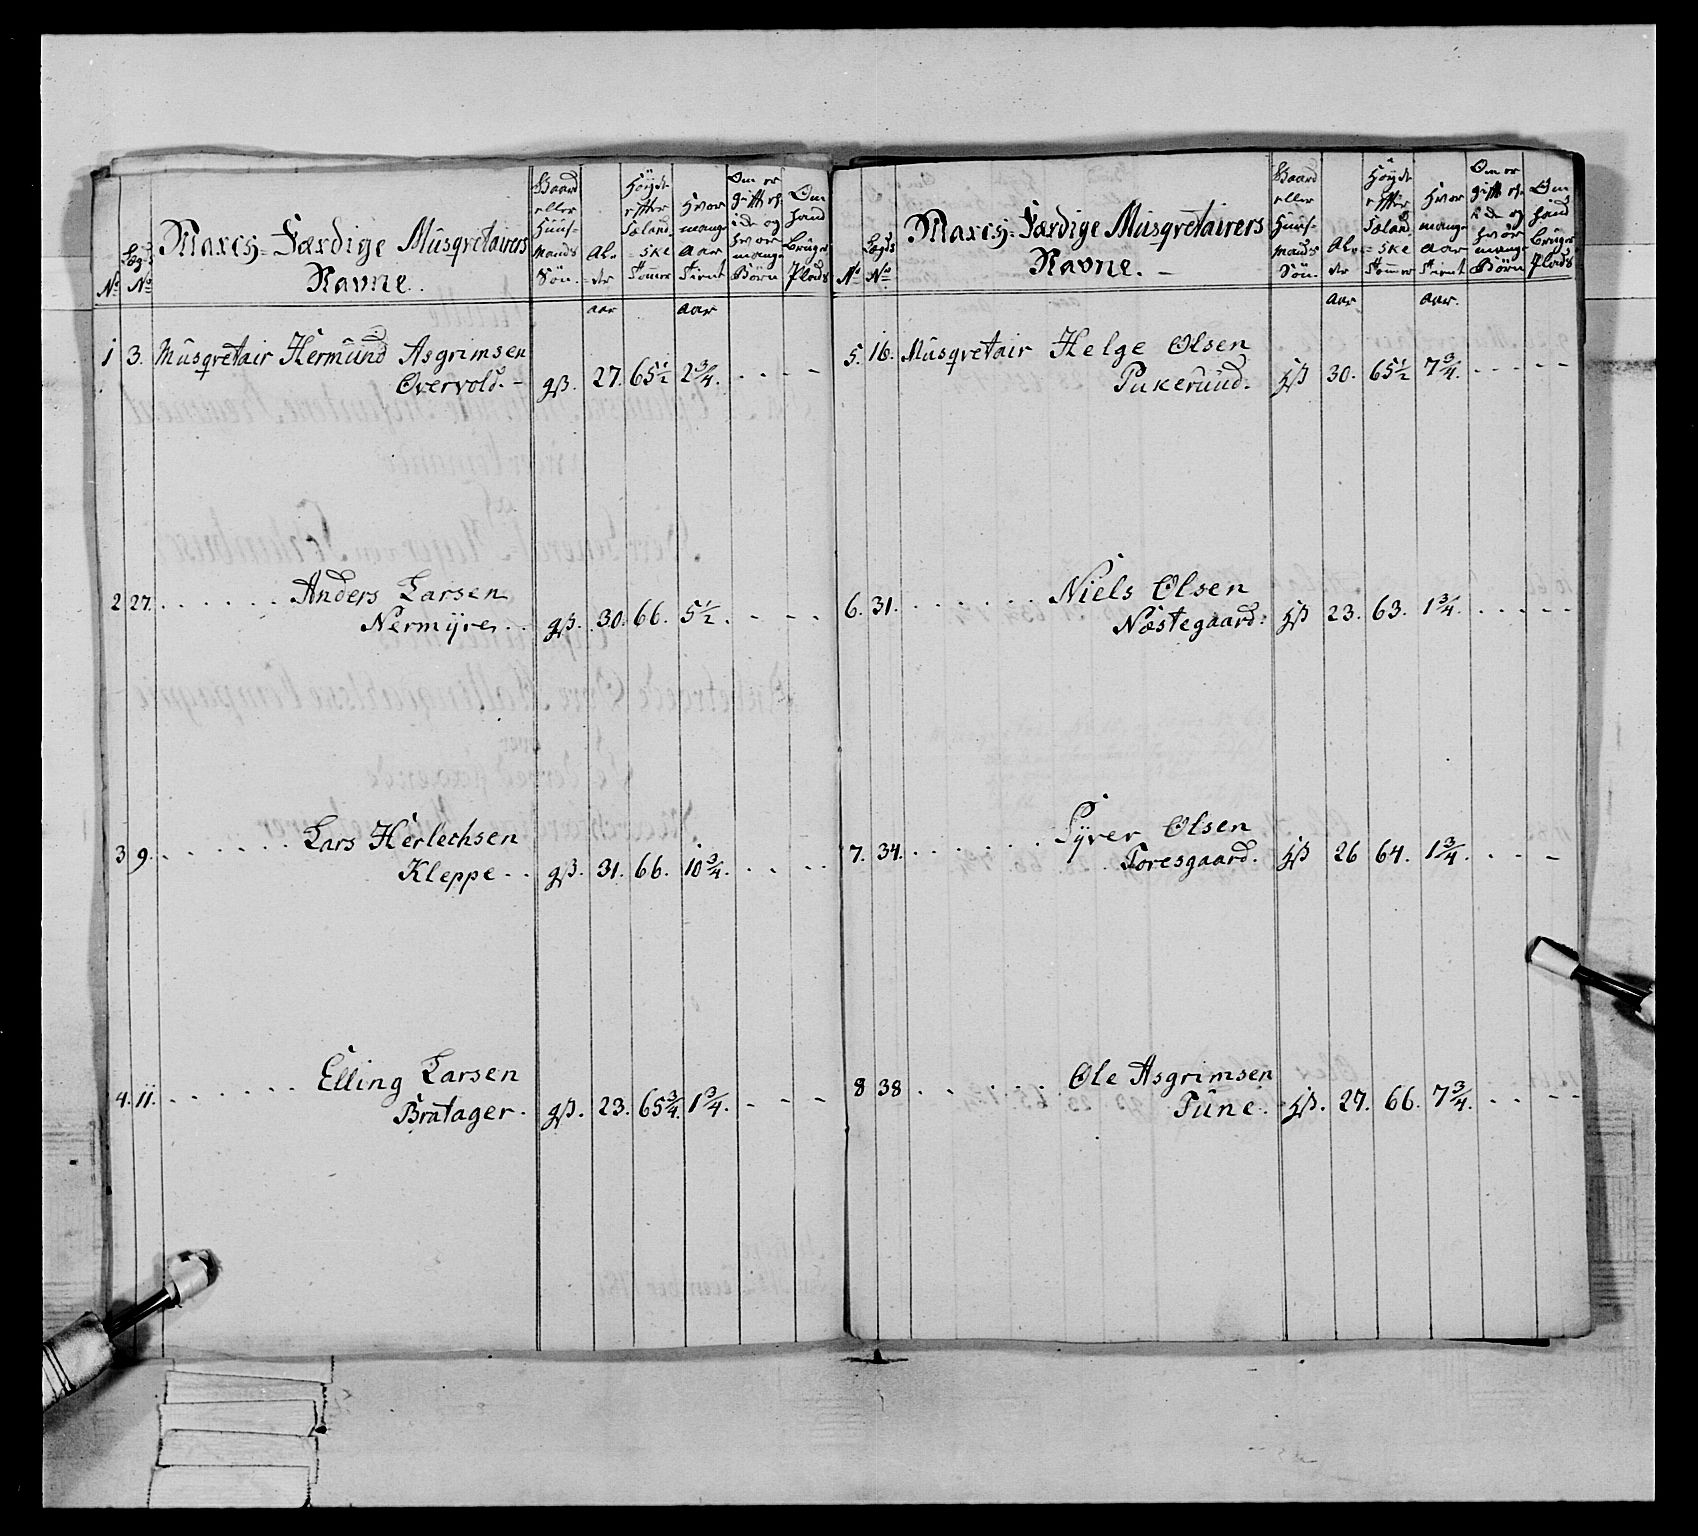 No
Lægds No
March-Færdige Musqvetairers
Navne.
Gaard
eller
Huus-
mands
Søn.
Al-
der
Høyde
efter
Sæland-
ske
Tommer
Hvor
mange
Aar
tient
Om er
gift ef-
ide og
hvor
mange
Börn
Om
hand
bruger
Plads
aar
aar
1 3. Musqvetair Hermund Asgrimsen
Overvold. - gß. 27. 65½ 2¾. - - - -
2 27. . . . . . . Anders Larsen
Nermÿre. . gß. 30. 66. 5½. - - - -
3 9. . . . . . . Lars Herlechsen
Kleppe. . gß. 31. 66. 10¾. . . - -
4. 11. . . . . . . Elling Larsen
Bratager. gß. 23. 65¾. 1¾. - - -
No
Lægds No
March-Færdige Musqvetairers
Navne. -
Gaard
eller
Huus-
mands
Søn.
Al-
der
Høyde
efter
Sæland-
ske
Tommer
Hvor
mange
Aar
tient
Om er
gift ef-
ide og
hvor
mange
Börn
Om
hand
bruger
Plads
aar
aar.
5. 16. Musqvetair Helge Olsen
Pukerund. hß 30. 65½ 7¾. - - - -
6. 31. . . . . . . Niels Olsen
Næstegaard. hß 23. 63. 1¾. - - - -
7. 34. . . . . . . Syver Olsen
Toresgaard. hß 26 64. 1¾. . - -
8 38 . . . . . . Ole Asgrimsen
Tune. hß. 27. 66. 7¾. . . - -